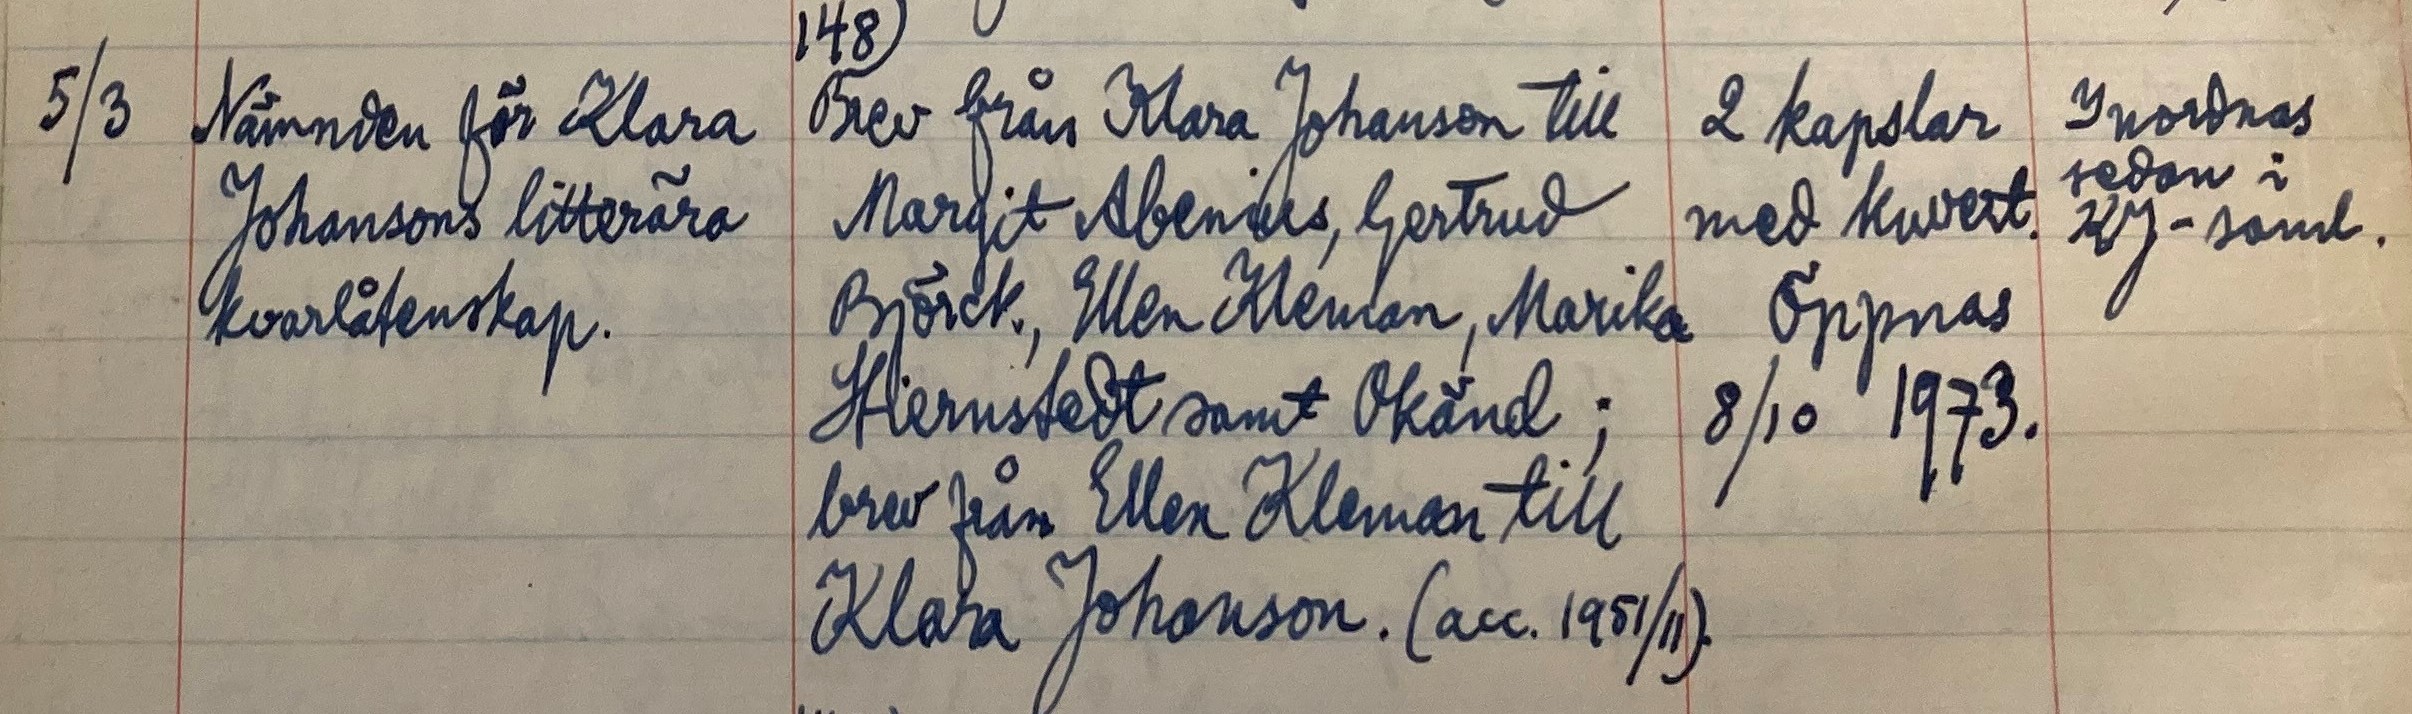 5/3
Nämnden för Klara
Johansons litterära
kvarlåtenskap.
148)
Brev från Klara Johanson till
Margit Abenius, Gertrud
Björck, Ellen Kleman, Marika
Stiernstedt samt Okänd;
brev från Ellen Kleman till
Klara Johanson. (acc. 1951/11).
2 kapslar
med kuvert.
Öppnas
8/10 1973.
Inordnas
sedan i
KJ-saml.